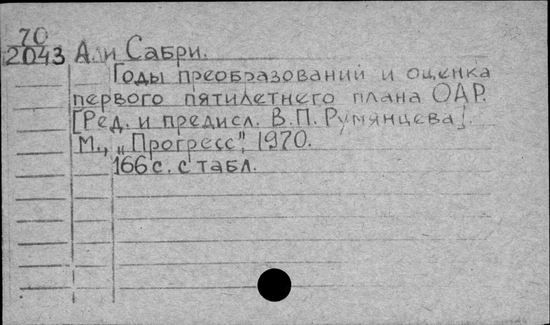 70
2043 Али Сабри.
Годы преобразований и оценка
первого пятилетнего плана ОАР.
[Ред. и предисл. В.П. Румянцева].
М., „Прогресс", 1970.
166 с. с табл.